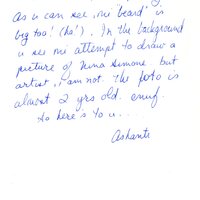 As u can see, mi 'beard' is
big too! (ha!). In the background
u see mi attempt to draw a
picture of Nina Simone. but
artist, i am not. the foto is
almost 2 yrs old. enuf.
so here's to u....
Ashanti